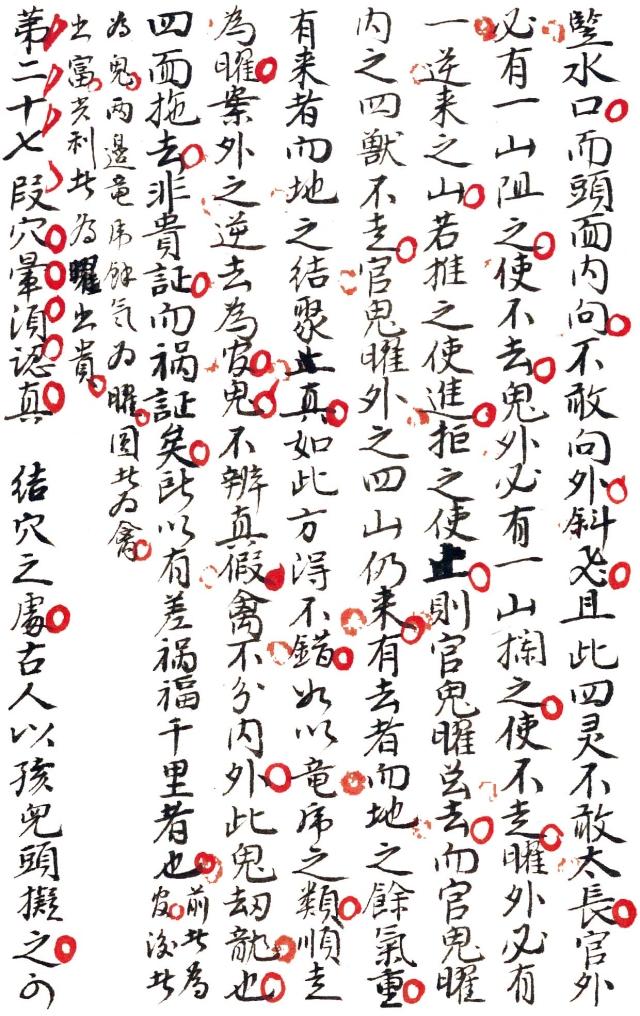 竖水口而頭面内向不敢向外斜飞且此四灵不敢太長官外
必有一山阻之使不去鬼外必有一山拦之使不走曜外必有
一逆来之山若推之使進拒之使止則官鬼曜岂去而官鬼曜
内之四獸不走官鬼曜外之四山仍来有去者而地之餘氣重
有来者而地之结聚真如此方得不錯如以竜虎之類順走
為曜案外之逆去為官鬼不辨真假禽不分内外此鬼劫龍也
四面拖去非貴証而祸証矣所以有差祸福千里者也前此為官後此
為鬼两邊竜虎餘气为曜围此为禽
出富官利此為曜出貴
第二十七段穴暈須認真 结穴之處古人以孩兒頭擬之可